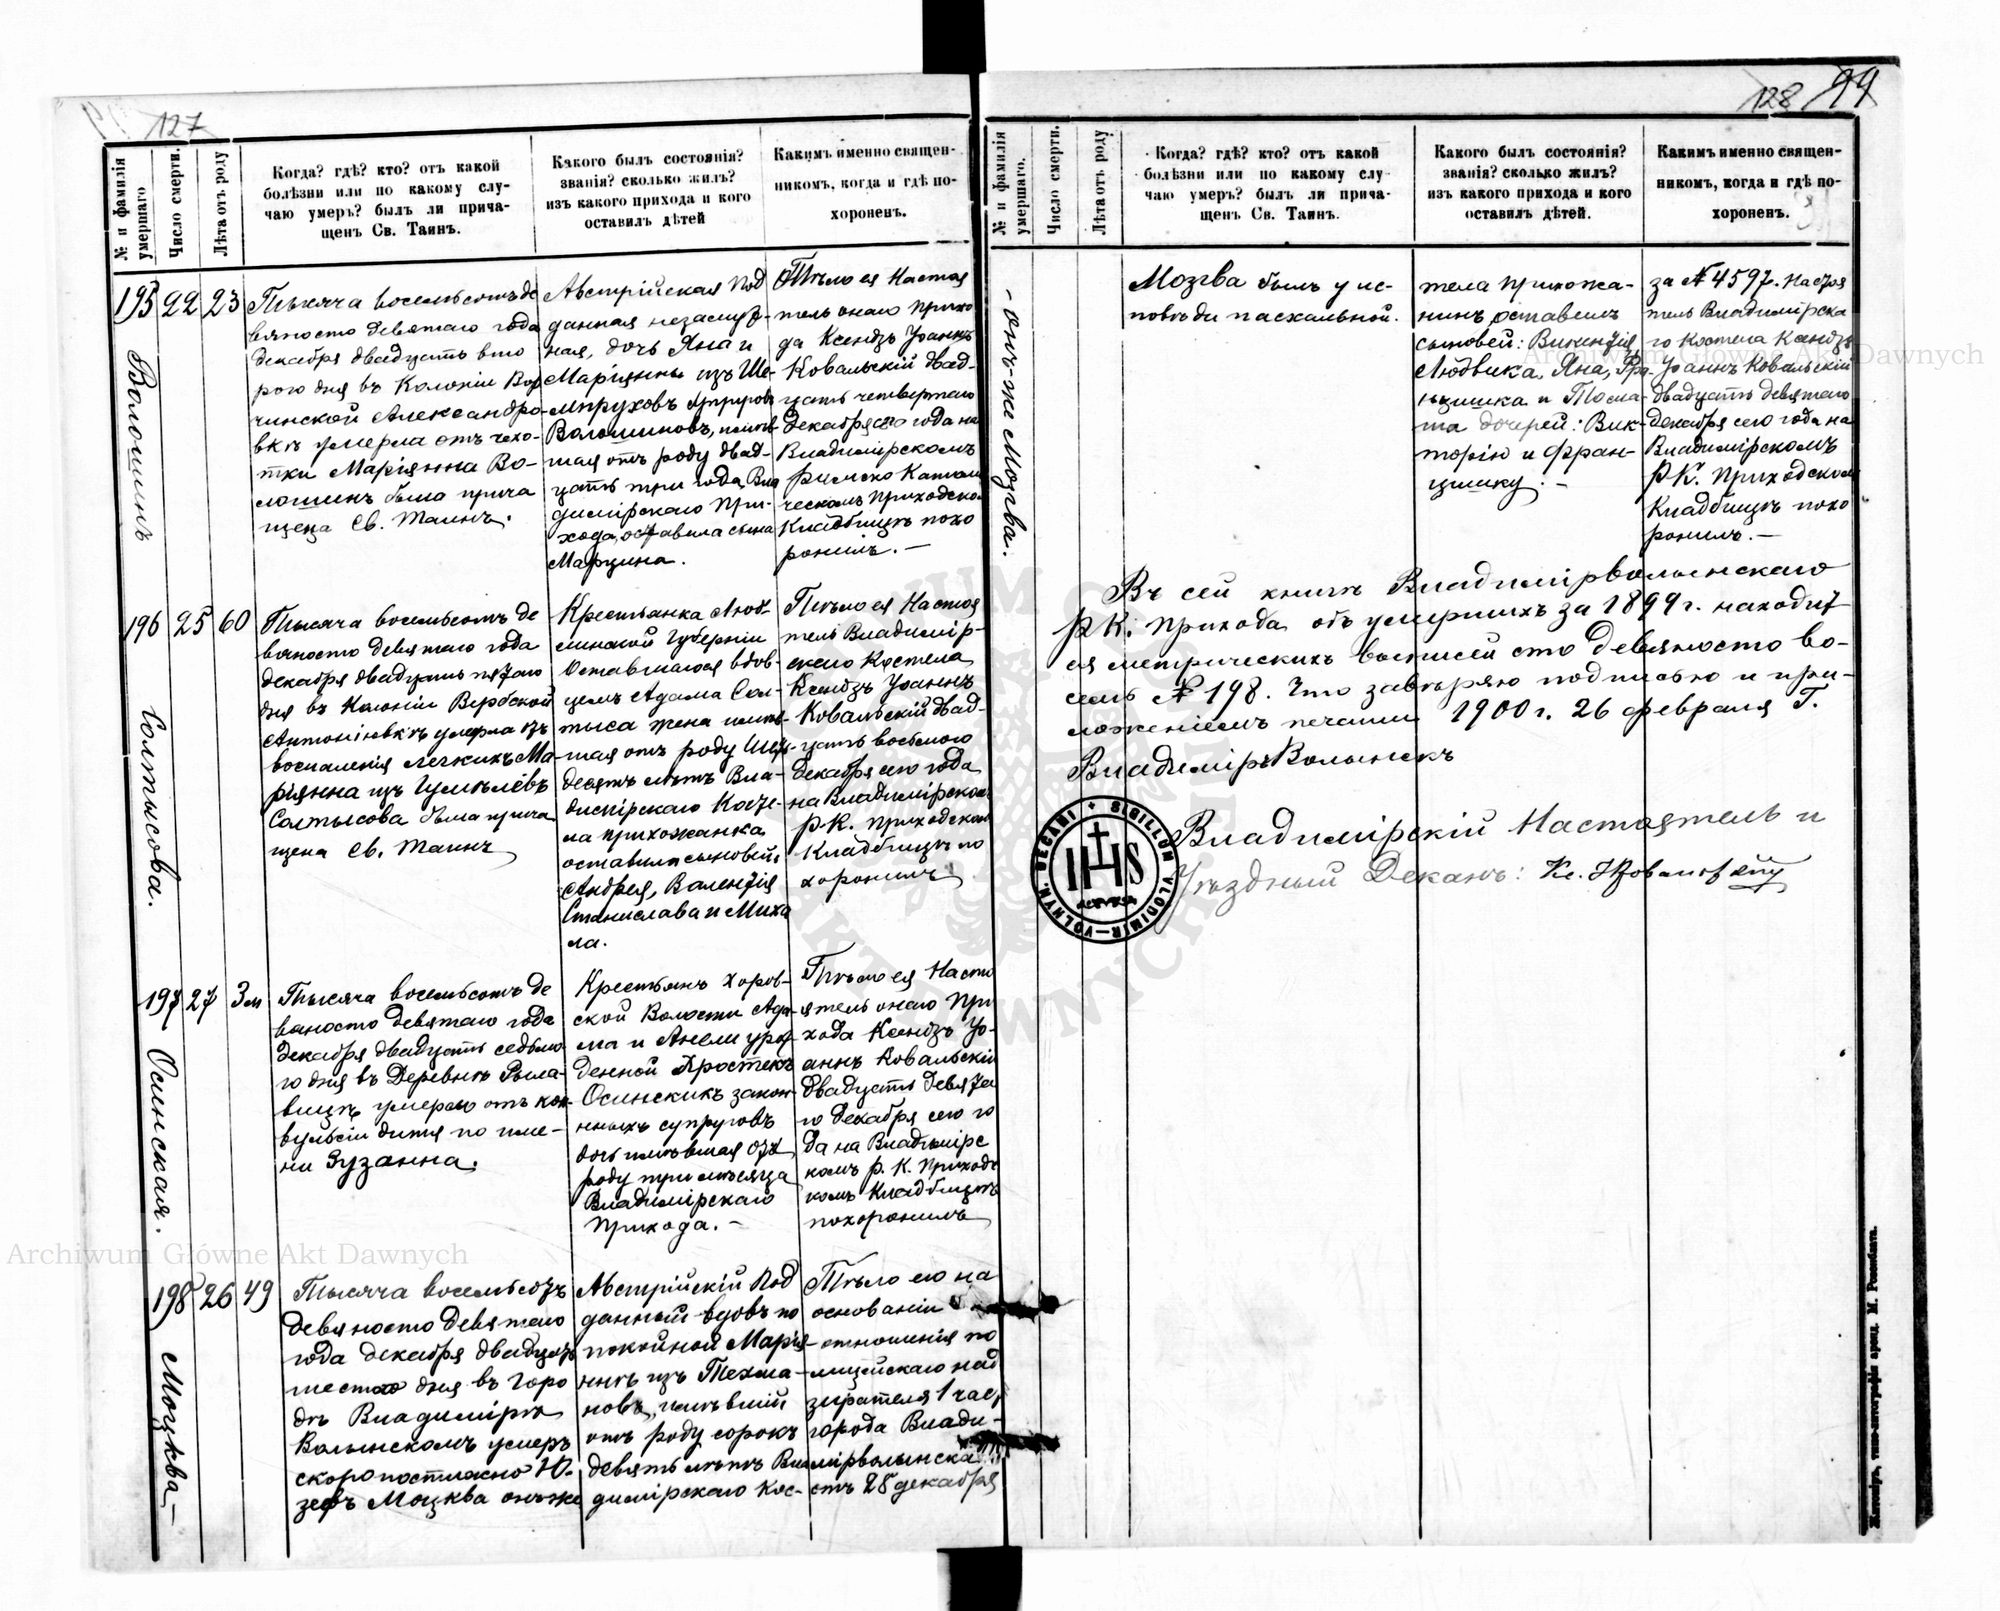 127
№ и фамилія умершаго
Число смерти.
Лѣта отъ роду
Когда? гдѣ? кто? отъ какой
болѣзни или по какому слу-
чаю умеръ? былъ ли прича-
щенъ Св. Таинъ.
Какого былъ состоянія?
званія? сколько жилъ?
изъ какого прихода и кого
оставилъ дѣтей
Какимъ именно священ-
никомъ, когда и гдѣ по-
хороненъ.
195 22 23
Волошинъ
Тысяча восемьсотъ де
вяносто девятаго года
декабря двадцать вто
рого дня въ Колоніи Вор
чинской Александро-
вкѣ умерла отъ чехо-
тки Маріянна Во-
лошинъ была прича
щена Св. Таинъ.
Австрійская Под
данная незамуж-
ная, дочь Яна и
Маріянны изъ Ше-
супруговъ
Волошиновъ, имѣв-
шая отъ роду двад-
цать три года Вла
димірскаго При-
хода, оставила сына
Марцина.
Тѣло ея Настоя
тель онаго прихо
да Ксендзъ Іоаннъ
Ковальскій двад-
цать четвертаго
Декабря сего года на
Владимірскомъ
римско Катол
ческомъ приходско
Кладбищѣ похо
ронилъ. —
196 25 60
Солтысова.
Тысяча восемьсотъ де
вяносто девятаго года
декабря двадцать пятаго
дня въ Колоніи Вербской
Антоніовкѣ умерла отъ
воспаленія легкихъ Ма-
ріянна изъ
Солтысова была прича
щена Св. Таинъ
Крестьянка Люб-
линской Губерніи
Оставшагося вдов-
цемъ Адама Сол-
тыса жена имѣв-
шая отъ роду шесть-
десятъ лѣтъ Вла-
димірскаго Косте-
ла прихожанка
оставила сыновей:
Андрея, Валентія
Станислава и Миха
ла.
Тѣло ея Настоя
тель Владимір-
скаго Костела
Ксендзъ Іоаннъ
Ковальскій двад-
цать восьмого
Декабря сего года
на Владимірском
Р.К. приходском
Кладбищѣ по
хоронилъ
197 27 3 м
Осинская.
Тысяча восемьсотъ де
вяносто девятаго года
декабря двадцать седьмо
го дня въ Деревнѣ Рыла-
вицѣ умерло отъ кон-
вульсіи дитя по име-
ни Зузанна.
Крестьянъ Хоров-
ской Волости Ада-
ма и Анели урож
денной Хростекъ
Осинскихъ закон-
ныхъ супруговъ
дочь имѣвшая отъ
роду три мѣсяца
Владимірскаго
Прихода. —
Тѣло ея Насто
ятель онаго При
хода Ксендзъ Іо-
аннъ Ковальскій
двадцать девята
го декабря сего го
да на Владимірс
комъ Р. К. Приходс
комъ Кладбищѣ
похоронилъ
198 26 49
Моцква —
Тысяча восемьсотъ
девяносто девятаго
года декабря двадцать
шестого дня въ горо
дѣ Владимірѣ
Волынскомъ умеръ
скоропостижно Ю-
зефъ Моцква онъ же
Австрійскій Под
данный вдовъ по
покойной Марія-
ннѣ изъ Техма-
новъ, имѣвшій
отъ роду сорокъ
девять лѣтъ Вла
димірскаго Кос-
Тѣло его на
основаніи
отношенія по
лицейскаго над
зирателя 1 час,
города Влади-
мірволынска
отъ 28 декабря
128 99
№ и фамилія умершаго.
Число смерти.
Лѣта отъ роду
Когда? гдѣ? кто? отъ какой
болѣзни или по какому слу-
чаю умеръ? былъ ли прича-
щенъ Св. Таинъ.
Какого былъ состоянія?
званія? сколько жилъ?
изъ какого прихода и кого
оставилъ дѣтей.
Какимъ именно священ-
никомъ, когда и гдѣ по-
хороненъ.
- онъ-же Мозгва.
Мозгва былъ у ис-
повѣди пасхальной.
тела прихожа-
нинъ, оставилъ
сыновей: Викентія
Людвика, Яна, Фра-
нцишка и Тома-
ша дочерей: Вик-
торію и Фран-
цишку. —
за № 4597. Настоя
тель Владимірска
го Костела Ксендзъ
Іоаннъ Ковальскій
двадцать девятаго
декабря сего года на
Владимірскомъ
Р.К. Приходском
Кладбищѣ похо
ронилъ. —
Въ сей книгѣ Владимірволынскаго
Р.К. прихода объ умершихъ за 1899 г. находит
ся метрическихъ выписей сто девяносто во-
семь № 198. Что завѣряю подписью и при-
ложеніемъ печати 1900 г. 26 февраля Г.
ВладимірВолынскъ
Владимірскій Настоятель и
Уѣздный Деканъ: Кс.
SIGILLUM VLODIMIR-VOLHYN. DECANI
IHS
Житоміръ, типо-литографія аренд. М. Роненблата.
Archiwum Główne Akt Dawnych
Archiwum Główne Akt Dawnych